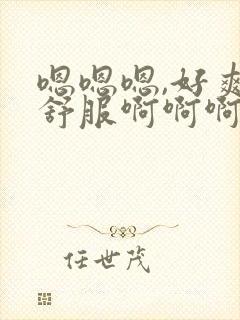 嗯嗯嗯,好爽
舒服啊啊啊
任世茂